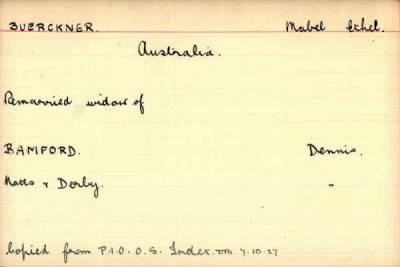 BUERCKNER. Mabel Ethel.
Australia.
Remarried widow of
BAMFORD. Dennis.
Notts & Derby. -
Copied from P.I.O.O.S. Index. 7.10.27